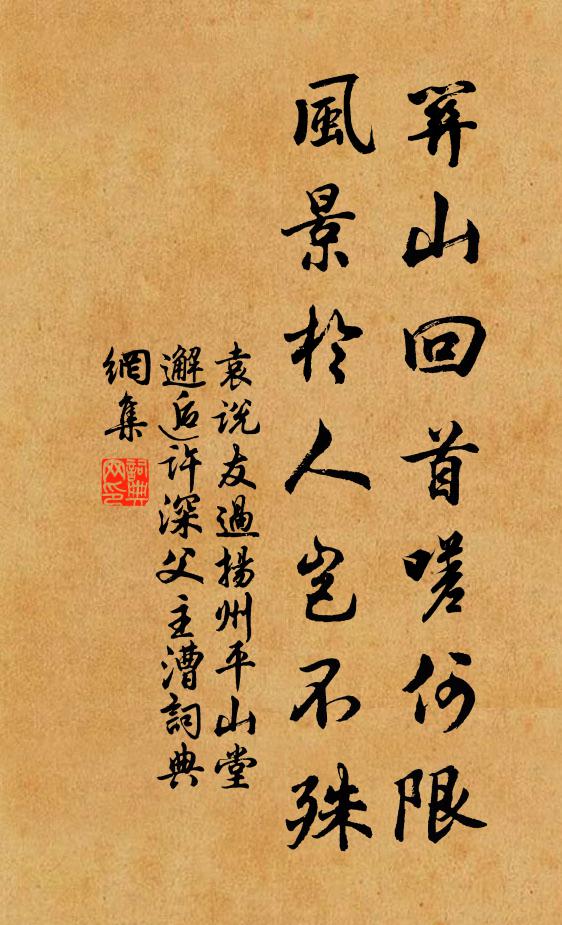 關山回首嗟何限
風景於人豈不殊
袁說友過揚州平山堂
邂逅許深父主漕詞典
網集
詞典
网印